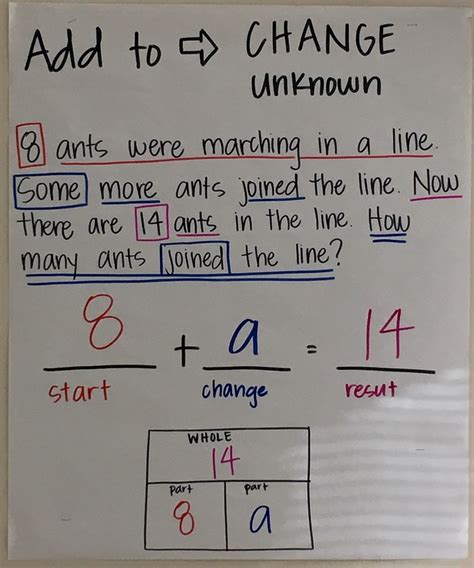 Add to ⇨ CHANGE
unknown
8 ants were marching in a line.
Some more ants joined the line. Now
there are 14 ants in the line. How
many ants joined the line?
8 + a = 14
start change resut
WHOLE
14
part part
8 a